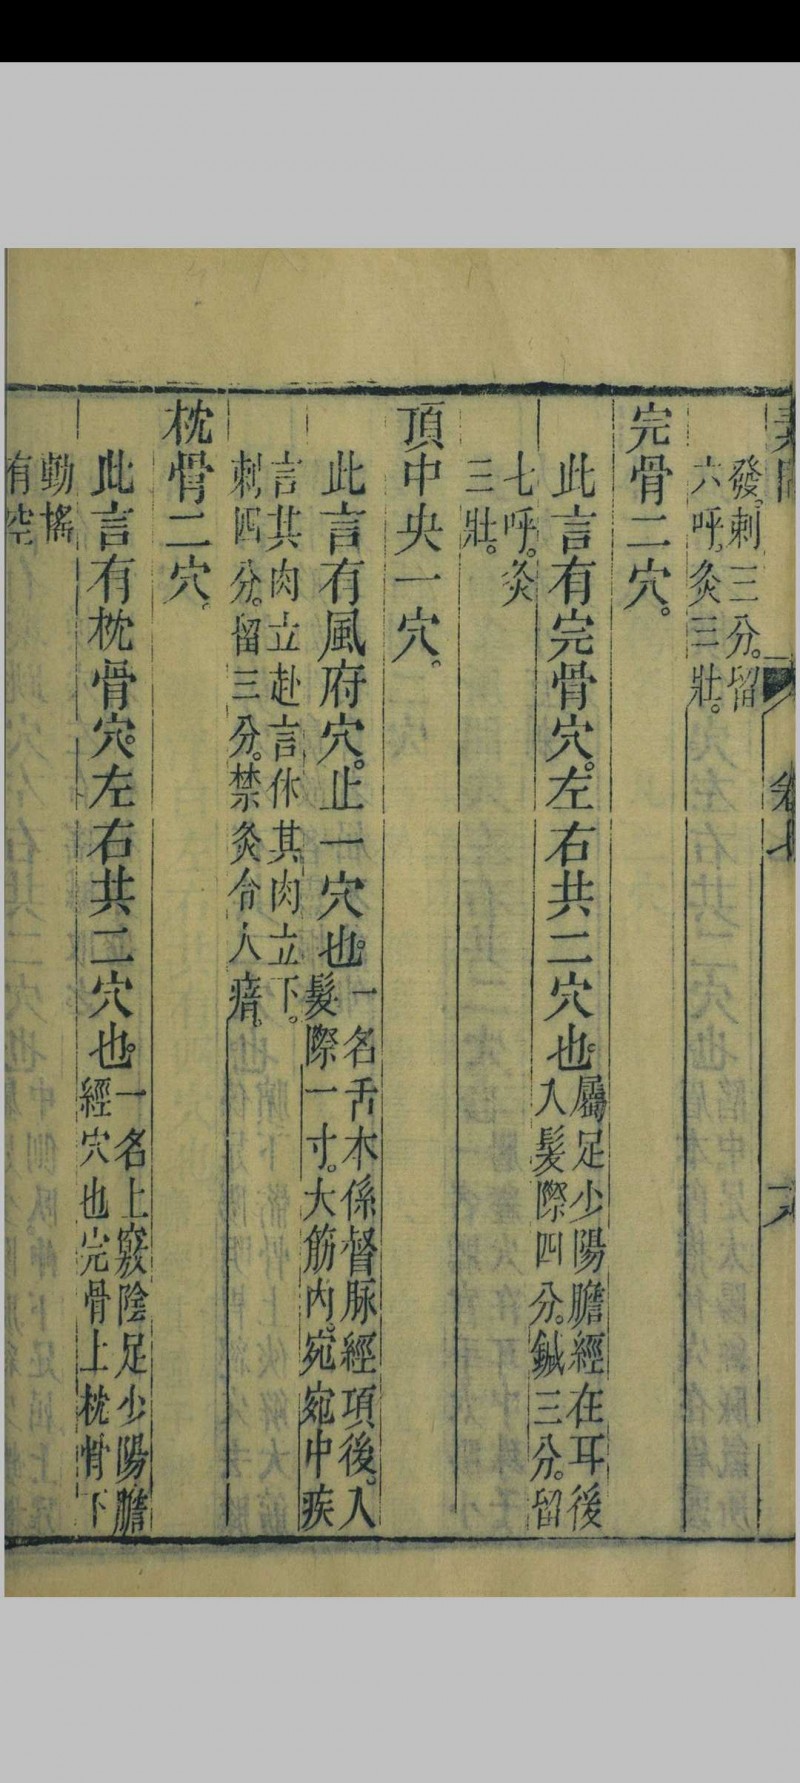 素問
卷七
發。刺三分。留
六呼。灸三壯。
完骨二穴。
此言有完骨穴。左右共二穴也。屬足少陽膽經在耳後
入髮際四分。鍼三分。留
七呼。灸
三壯。
頂中央一穴。
此言有風府穴。止一穴也。一名舌本係督脉經項後。入
髮際一寸。大筋內。宛宛中疾
言其肉立赴言休其肉立下。
刺四分。留三分。禁灸令人瘖。
枕骨二穴。
此言有枕骨穴。左右共二穴也。一名上竅陰足少陽膽
經穴也完骨上枕骨下
動搖
有空